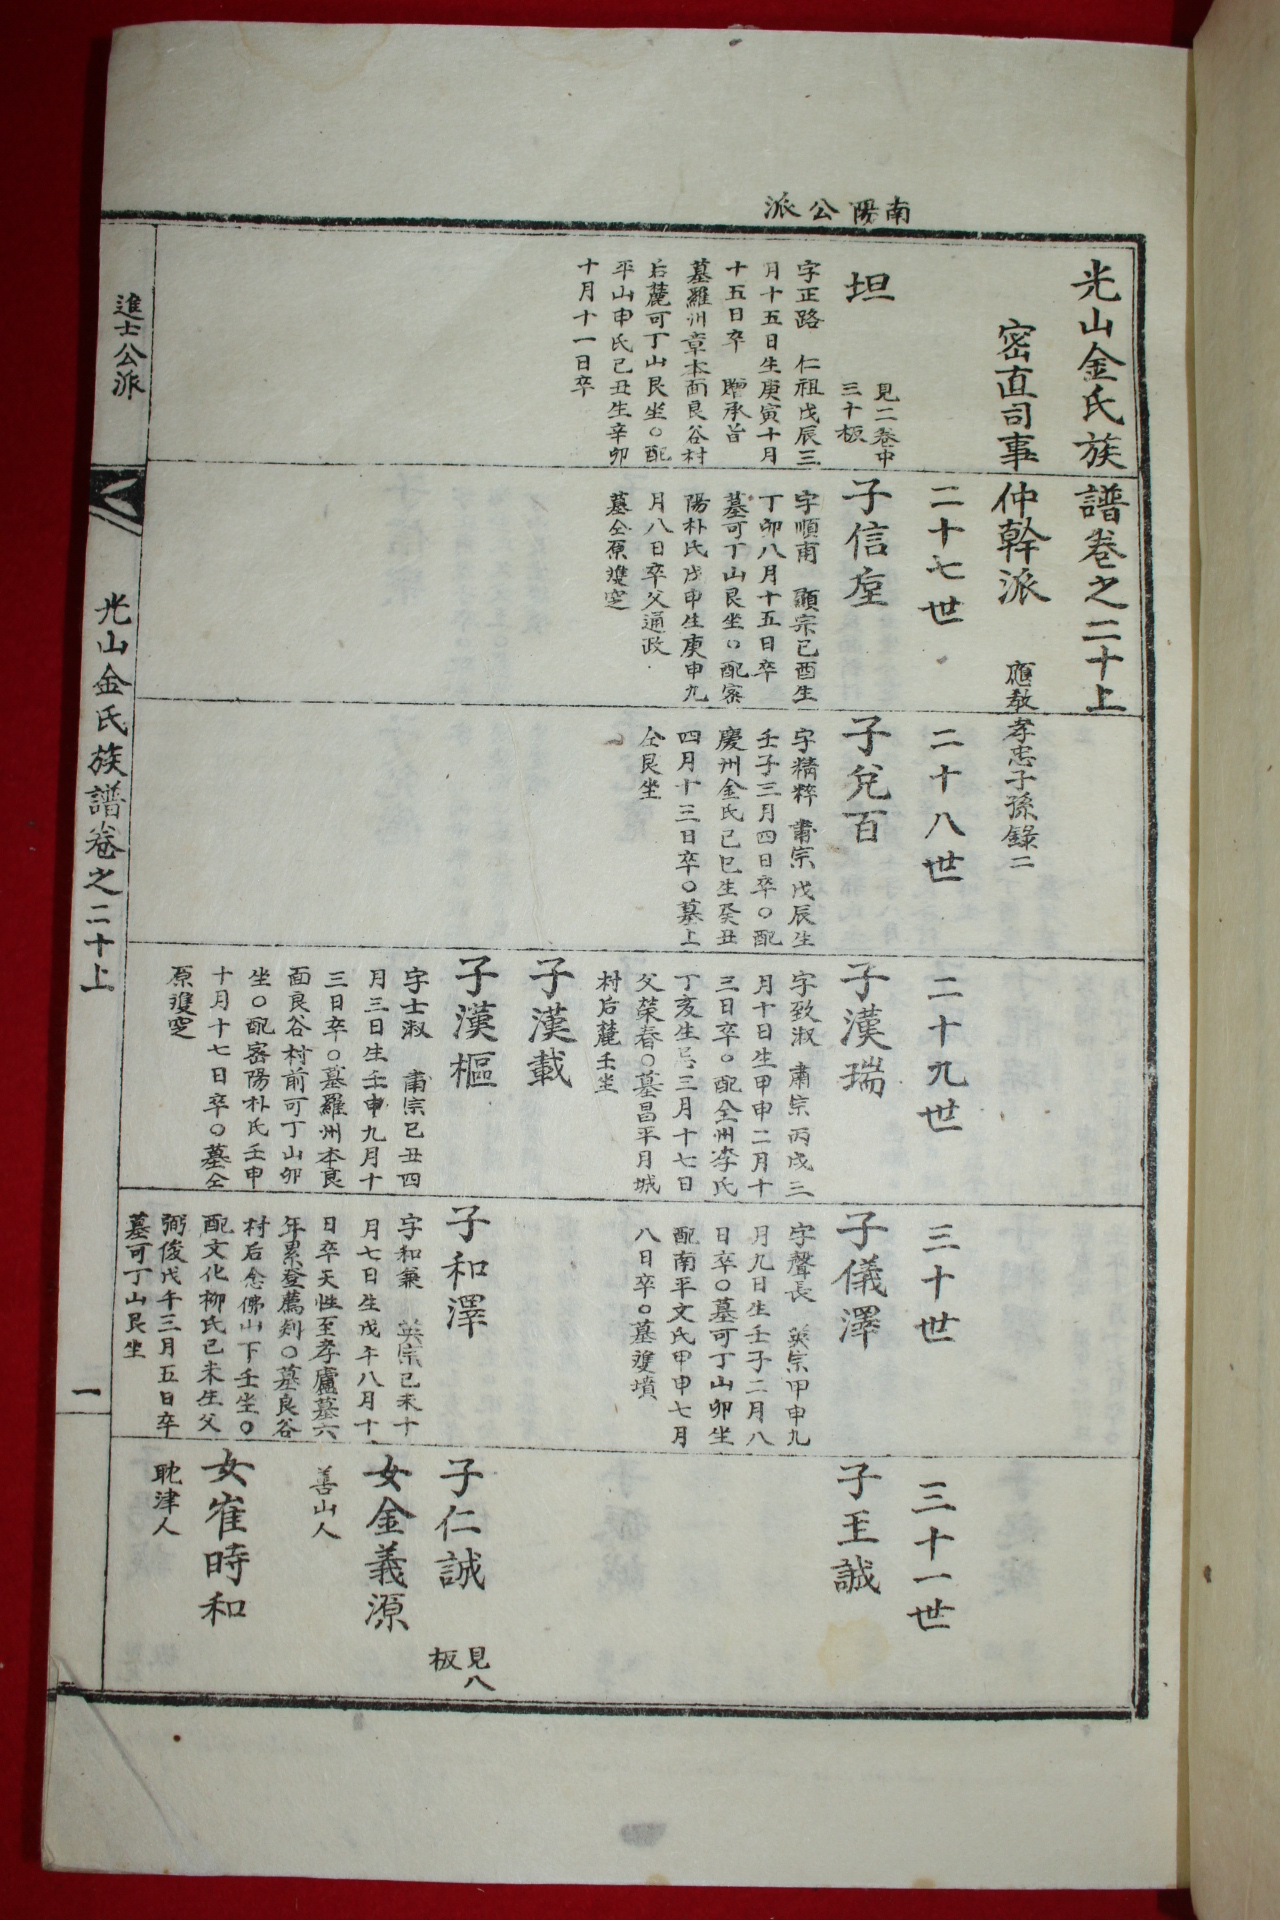 南陽公派
光山金氏族譜卷之二十上
密直司事仲幹派 應教孝忠子孫錄二
二十七世
二十八世
二十九世
三十世
三十一世
坦
見二卷中
三十板
字正路 仁祖戊辰三
月十五日生庚寅十月
十五日卒 贈承旨
墓羅州章本面良谷村
后麓可丁山艮坐○配
平山申氏己丑生辛卯
十月十一日卒
子信
字順甫 顯宗己酉生
丁卯八月十五日卒
墓可丁山艮坐○配密
陽朴氏戊申生庚申九
月八日卒父通政
墓仝原雙窆
子兌百
字精粹 肅宗戊辰生
壬子三月四日卒○配
慶州金氏己巳生癸丑
四月十三日卒○墓上
仝艮坐
子漢瑞
字致淑 肅宗丙戌三
月十日生甲申二月十
三日卒○配全州李氏
丁亥生忌三月十七日
父榮春○墓昌平月城
村后麓壬坐
子漢載
子漢樞
字士淑 肅宗己丑四
月三日生壬申九月十
三日卒○墓羅州本良
面良谷村前可丁山卯
坐○配密陽朴氏壬申
十月十七日卒○墓仝
原雙窆
子儀澤
字聲長 英宗甲申九
月九日生壬子二月八
日卒○墓可丁山卯坐
配南平文氏甲申七月
八日卒○墓雙墳
子和澤
字和兼 英宗己未十
月七日生戊午八月十
日卒天性至孝廬墓六
年累登薦剡○墓良谷
村后念佛山下壬坐○
配文化柳氏己未生父
弼俊戊午三月五日卒
墓可丁山艮坐
子玉誠
子仁誠
見八
板
女金義源
善山人
女崔時和
耽津人
進士公派
光山金氏族譜卷之二十上
一